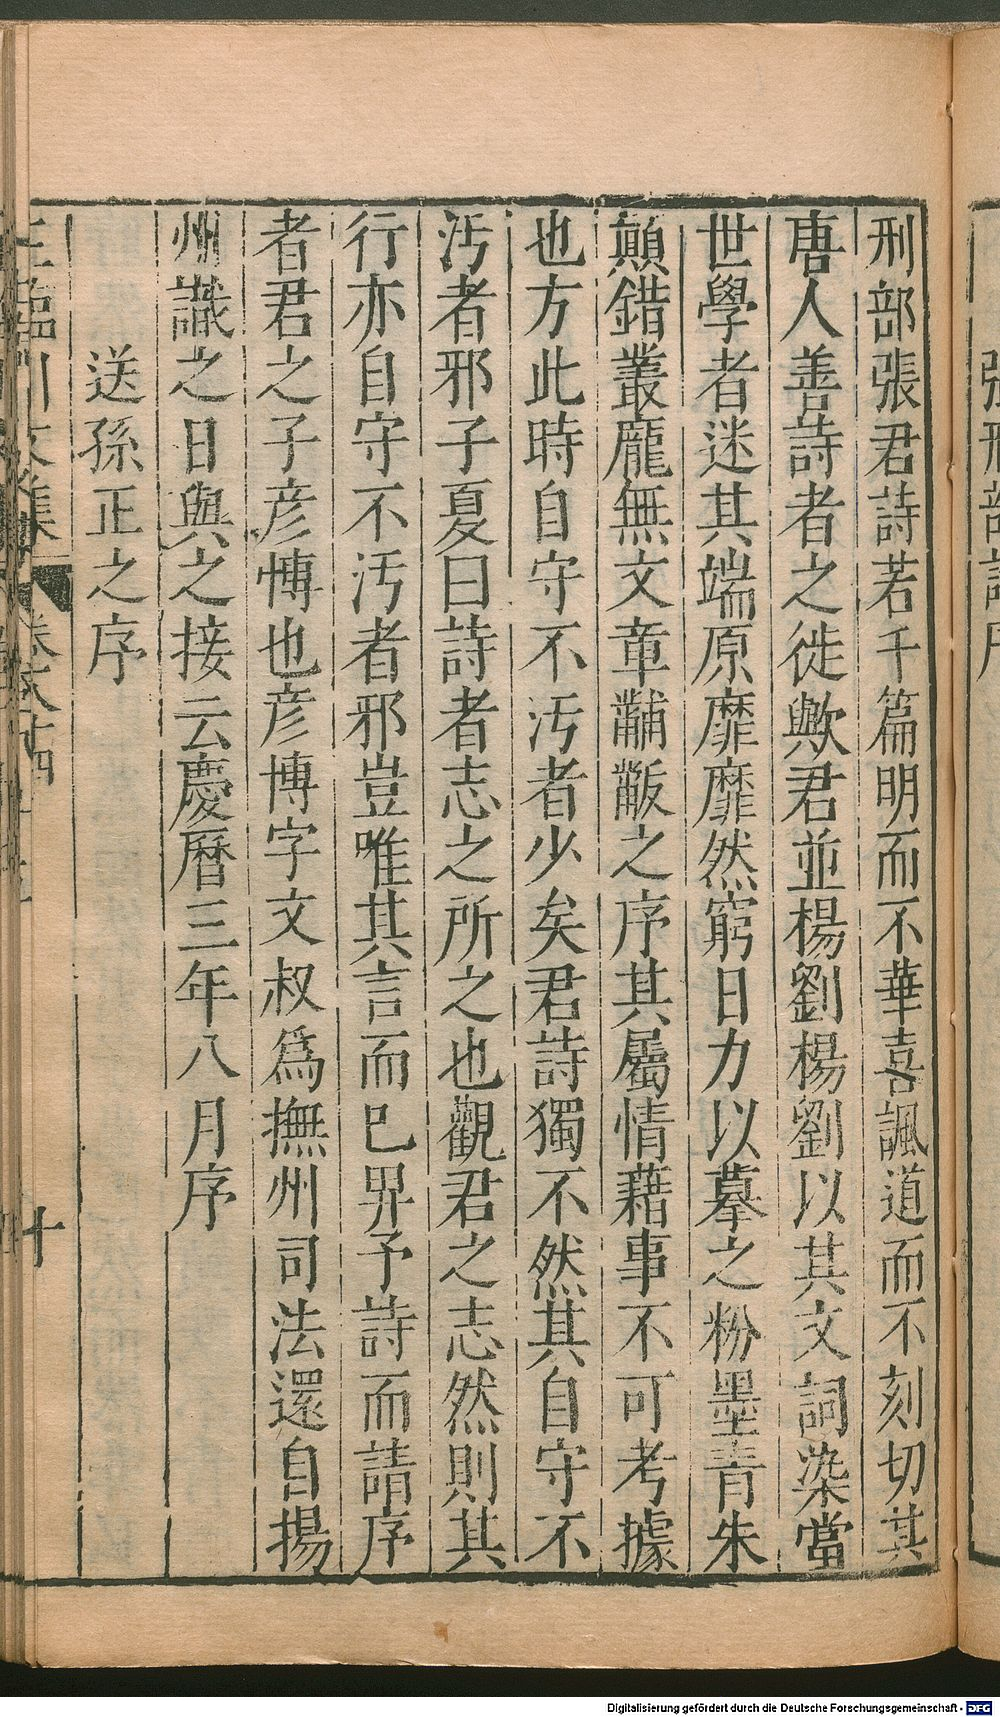 刑部張君詩若干篇明而不華喜諷道而不刻切其
唐人善詩者之徙歟君並楊劉楊劉以其文詞染當
世學者迷其端原靡靡然窮日力以摹之粉墨青朱
顛錯叢龐無文章黼黻之序其屬情藉事不可考據
也方此時自守不汚者少矣君詩獨不然其自守不
汚者邪子夏曰詩者志之所之也觀君之志然則其
行亦自守不汚者邪豈唯其言而已畀予詩而請序
者君之子彥博也彥博字文叔爲撫州司法還自揚
州識之日與之接云慶曆三年八月序
送孫正之序
王臨川文集 卷八十四 十
Digitalisierung gefördert durch die Deutsche Forschungsgemeinschaft - DFG